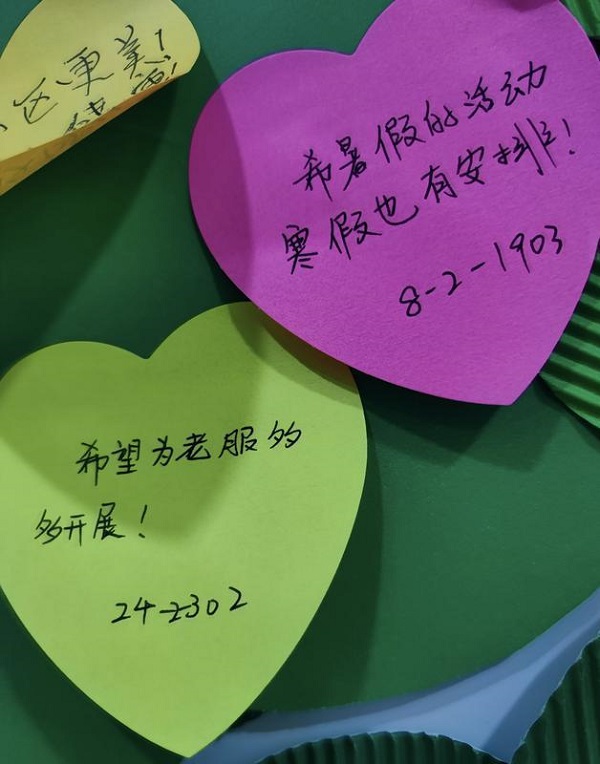 小区更美!
希暑假的活动
寒假也有安排!
8-2-1903
希望为老服务多
多开展!
24-2302